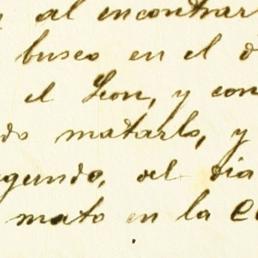 al encontrar
busco en el d
el Leon, y con
do matarlo, y
egundo, al dia
mato en la C